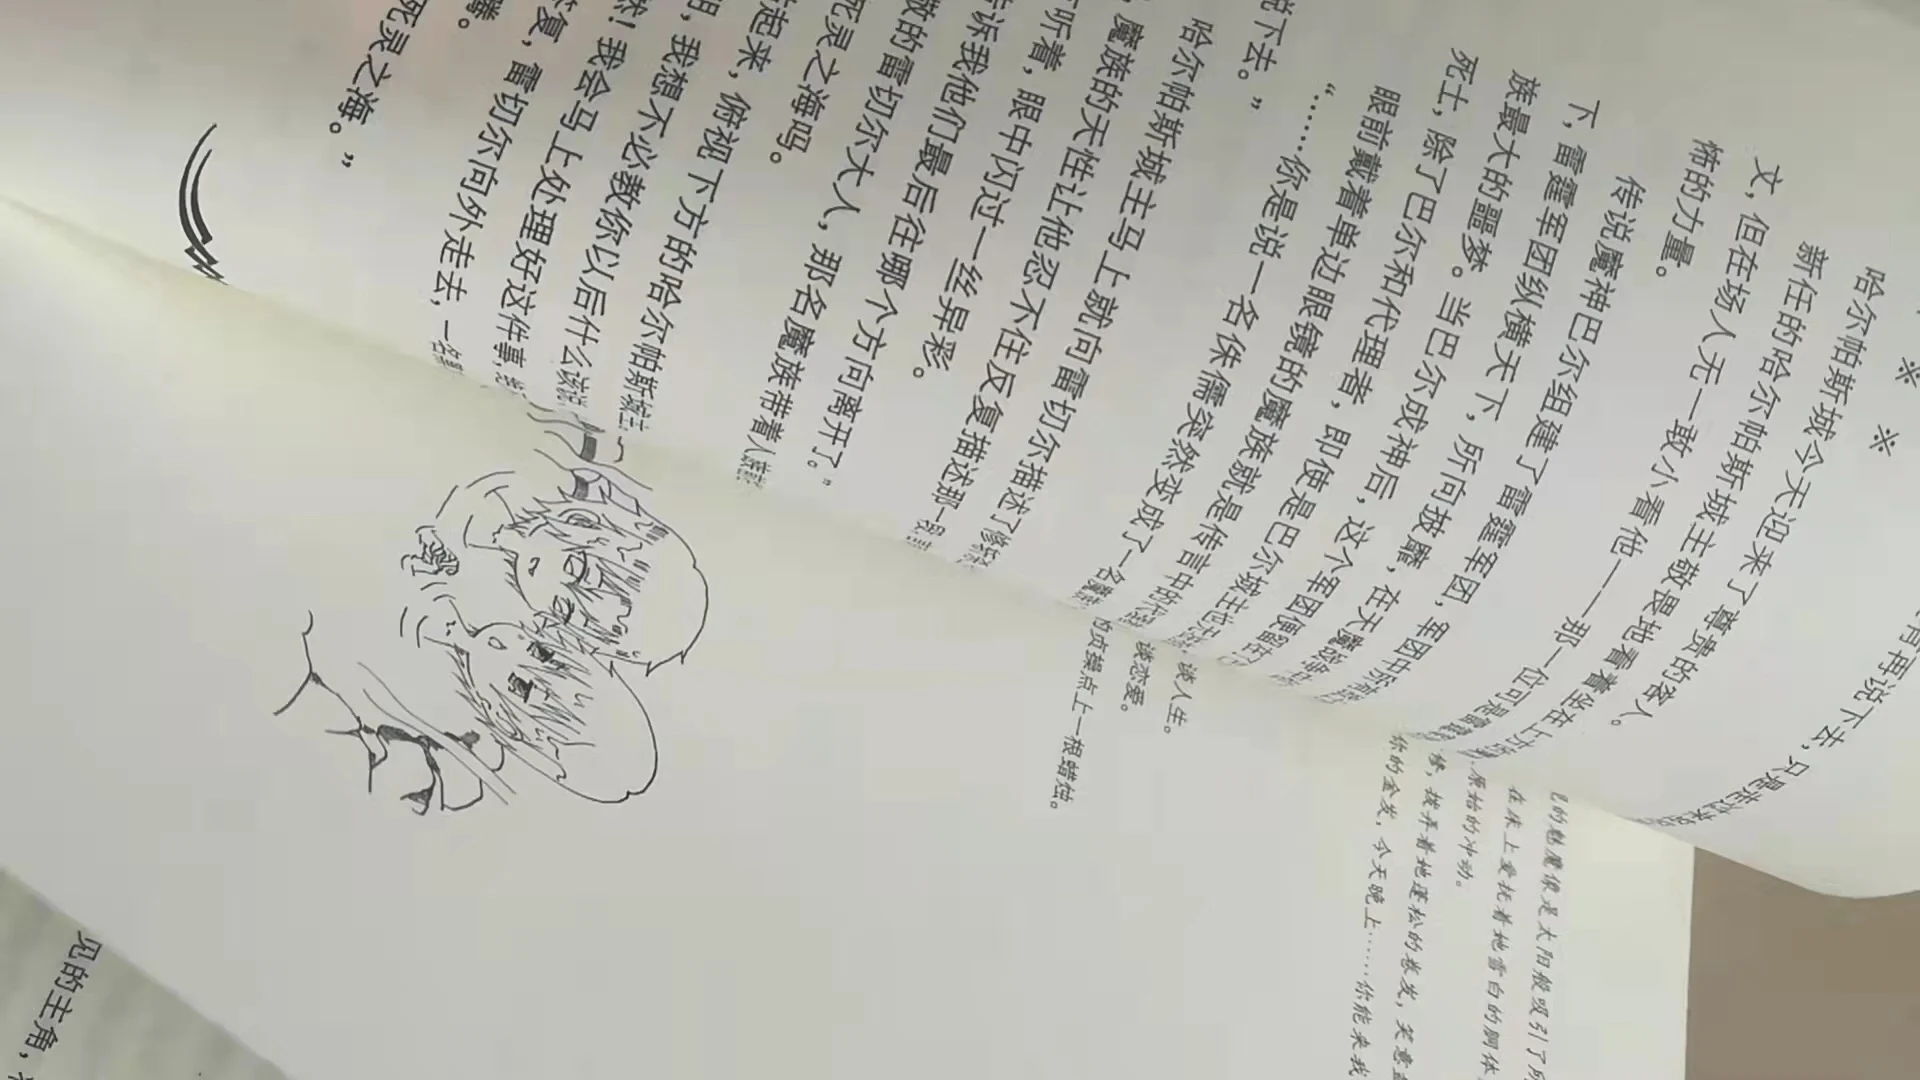 有再说下去，只是走过来
※ ※
哈尔帕斯城今天迎来了尊贵的客人。
新任的哈尔帕斯城主敬畏地看着坐在上方
文，但在场人无一敢小看他——那一位可是雷霆
怖的力量。
传说魔神巴尔组建了雷霆军团，军团中
下，雷霆军团纵横天下，所向披靡，在天魔
族最大的噩梦。当巴尔成神后，这个军团便
死士，除了巴尔和代理者，即使是巴尔城主也
眼前戴着单边眼镜的魔族就是传言中的
“……你是说一名侏儒突然变成了一名魔
说下去。”
哈尔帕斯城主马上就向雷切尔描述了
，魔族的天性让他忍不住反复描述那一段
听着，眼中闪过一丝异彩。
诉我他们最后往哪个方向离开了。”
敬的雷切尔大人，那名魔族带着人
死灵之海吗。
起来，俯视下方的哈尔帕斯城主
，我想不必教你以后什么该说
！我会马上处理好这件事，
复，雷切尔向外走去，一名
。
死灵之海。”
的魅魔像是太阳般吸引了所
在床上爱抚着她雪白的胴体
原始的冲动。
，拨弄着她蓬松的卷发，笑意
你的金发，今天晚上……你能来我
，谈人生。
谈恋爱。
的贞操点上一根蜡烛。
见的主角，